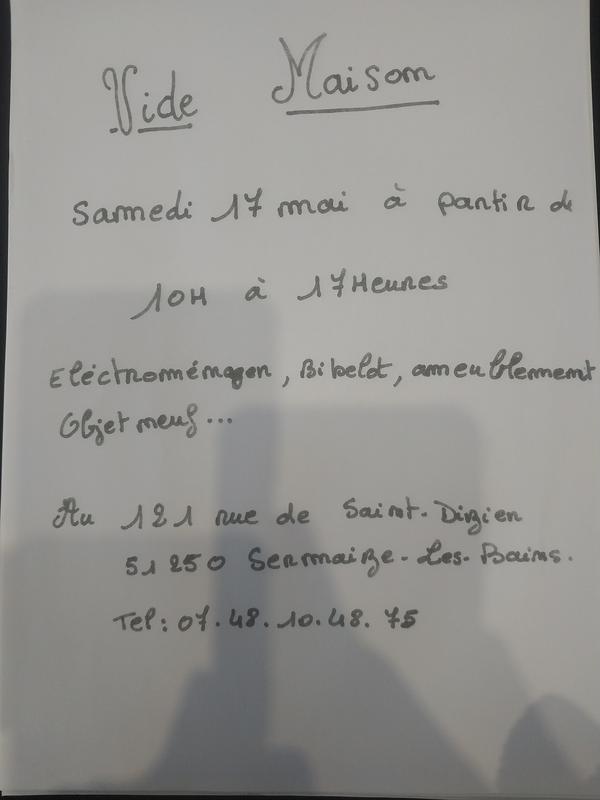 Vide Maison
Samedi 17 mai à partir de
10H à 17Heures
Eléctroménager, Bibelot, ameublement
Objet neuf...
Au 121 rue de Saint-Dizier
51250 Sermaize-Les-Bains.
Tel: 07.48.10.48.75